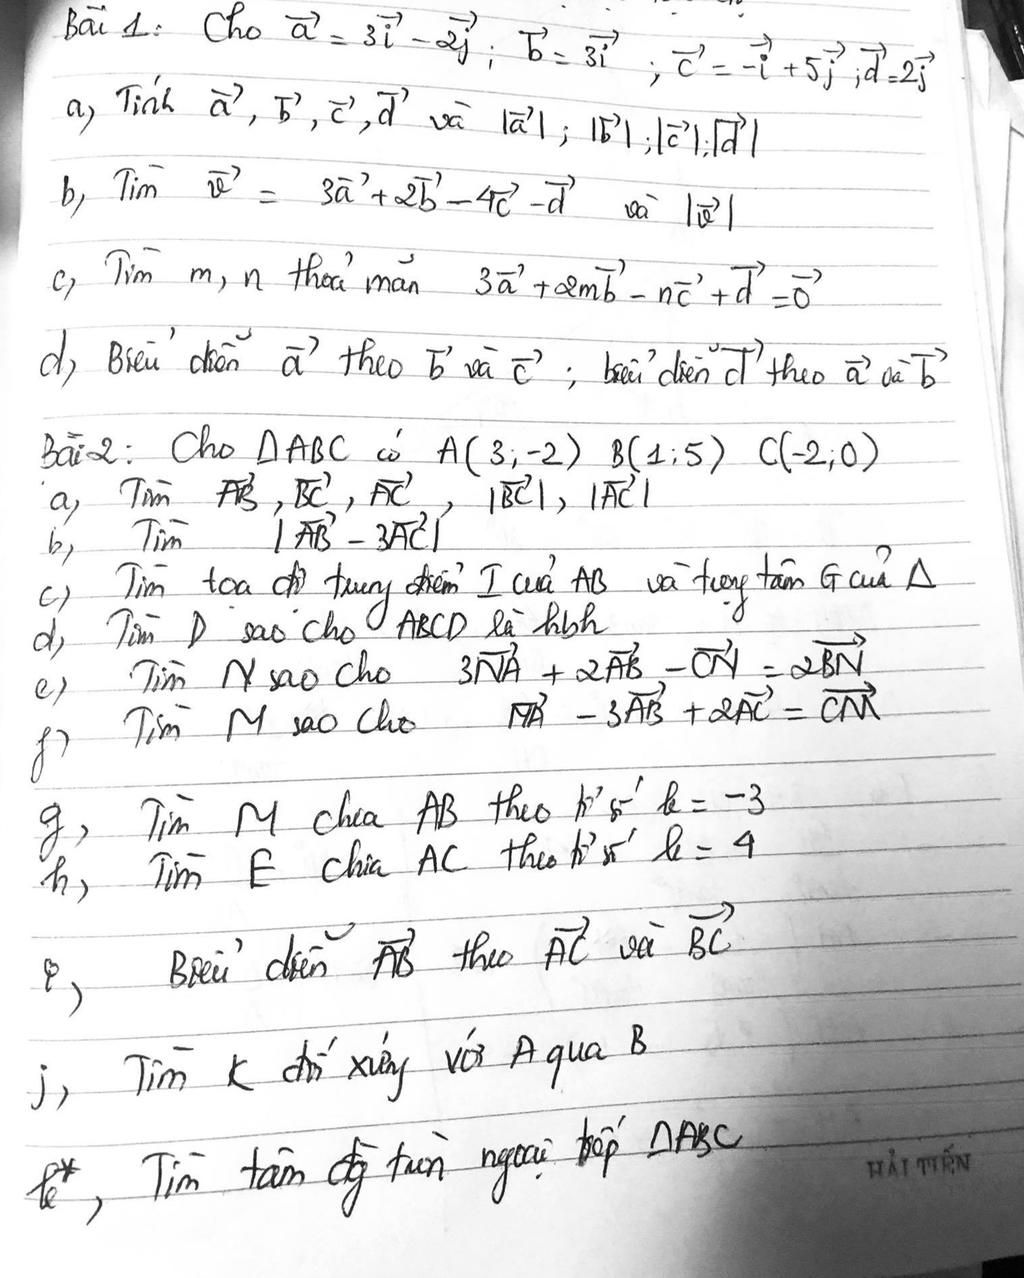 Bài 1: Cho a⃗ = 3i⃗ - 2j⃗ ; b⃗ = 3i⃗ ; c⃗ = -i⃗ + 5j⃗ ; d⃗ = 2j⃗
a, Tính a⃗, b⃗, c⃗, d⃗ và |a⃗| ; |b⃗| ; |c⃗| ; |d⃗|
b, Tìm v⃗ = 3a⃗ + 2b⃗ - 4c⃗ - d⃗ và |v⃗|
c, Tìm m, n thoả mãn 3a⃗ + 2mb⃗ - nc⃗ + d⃗ = 0⃗
d, Biểu diễn a⃗ theo b⃗ và c⃗ ; biểu diễn d⃗ theo a⃗ và b⃗
Bài 2: Cho ΔABC có A(3;-2) B(1;5) C(-2;0)
a, Tìm AB⃗, BC⃗, AC⃗, |BC⃗|, |AC⃗|
b, Tìm |AB⃗ - 3AC⃗|
c) Tìm toạ độ trung điểm I của AB và trọng tâm G của Δ
d, Tìm D sao cho ABCD là hbh
e) Tìm N sao cho 3NA⃗ + 2AB⃗ - CN⃗ = 2BN⃗
f) Tìm M sao cho MA⃗ - 3AB⃗ + 2AC⃗ = CM⃗
g, Tìm M chia AB theo tỉ số k = -3
h, Tìm E chia AC theo tỉ số k = 4
i, Biểu diễn AB⃗ theo AC⃗ và BC⃗
j, Tìm K đối xứng với A qua B
k*, Tìm tâm đg tròn ngoại tiếp ΔABC
HẢI TIẾN